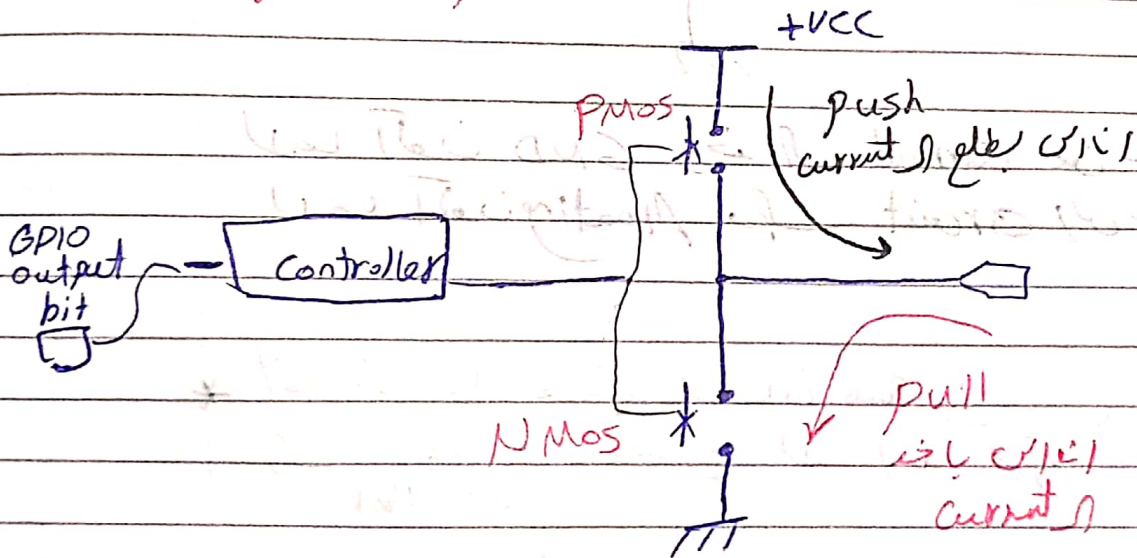 +VCC
PMOS
push
انا كدا بطلع ال current
GPIO
output
bit
Controller
NMOS
pull
باخد
ال current